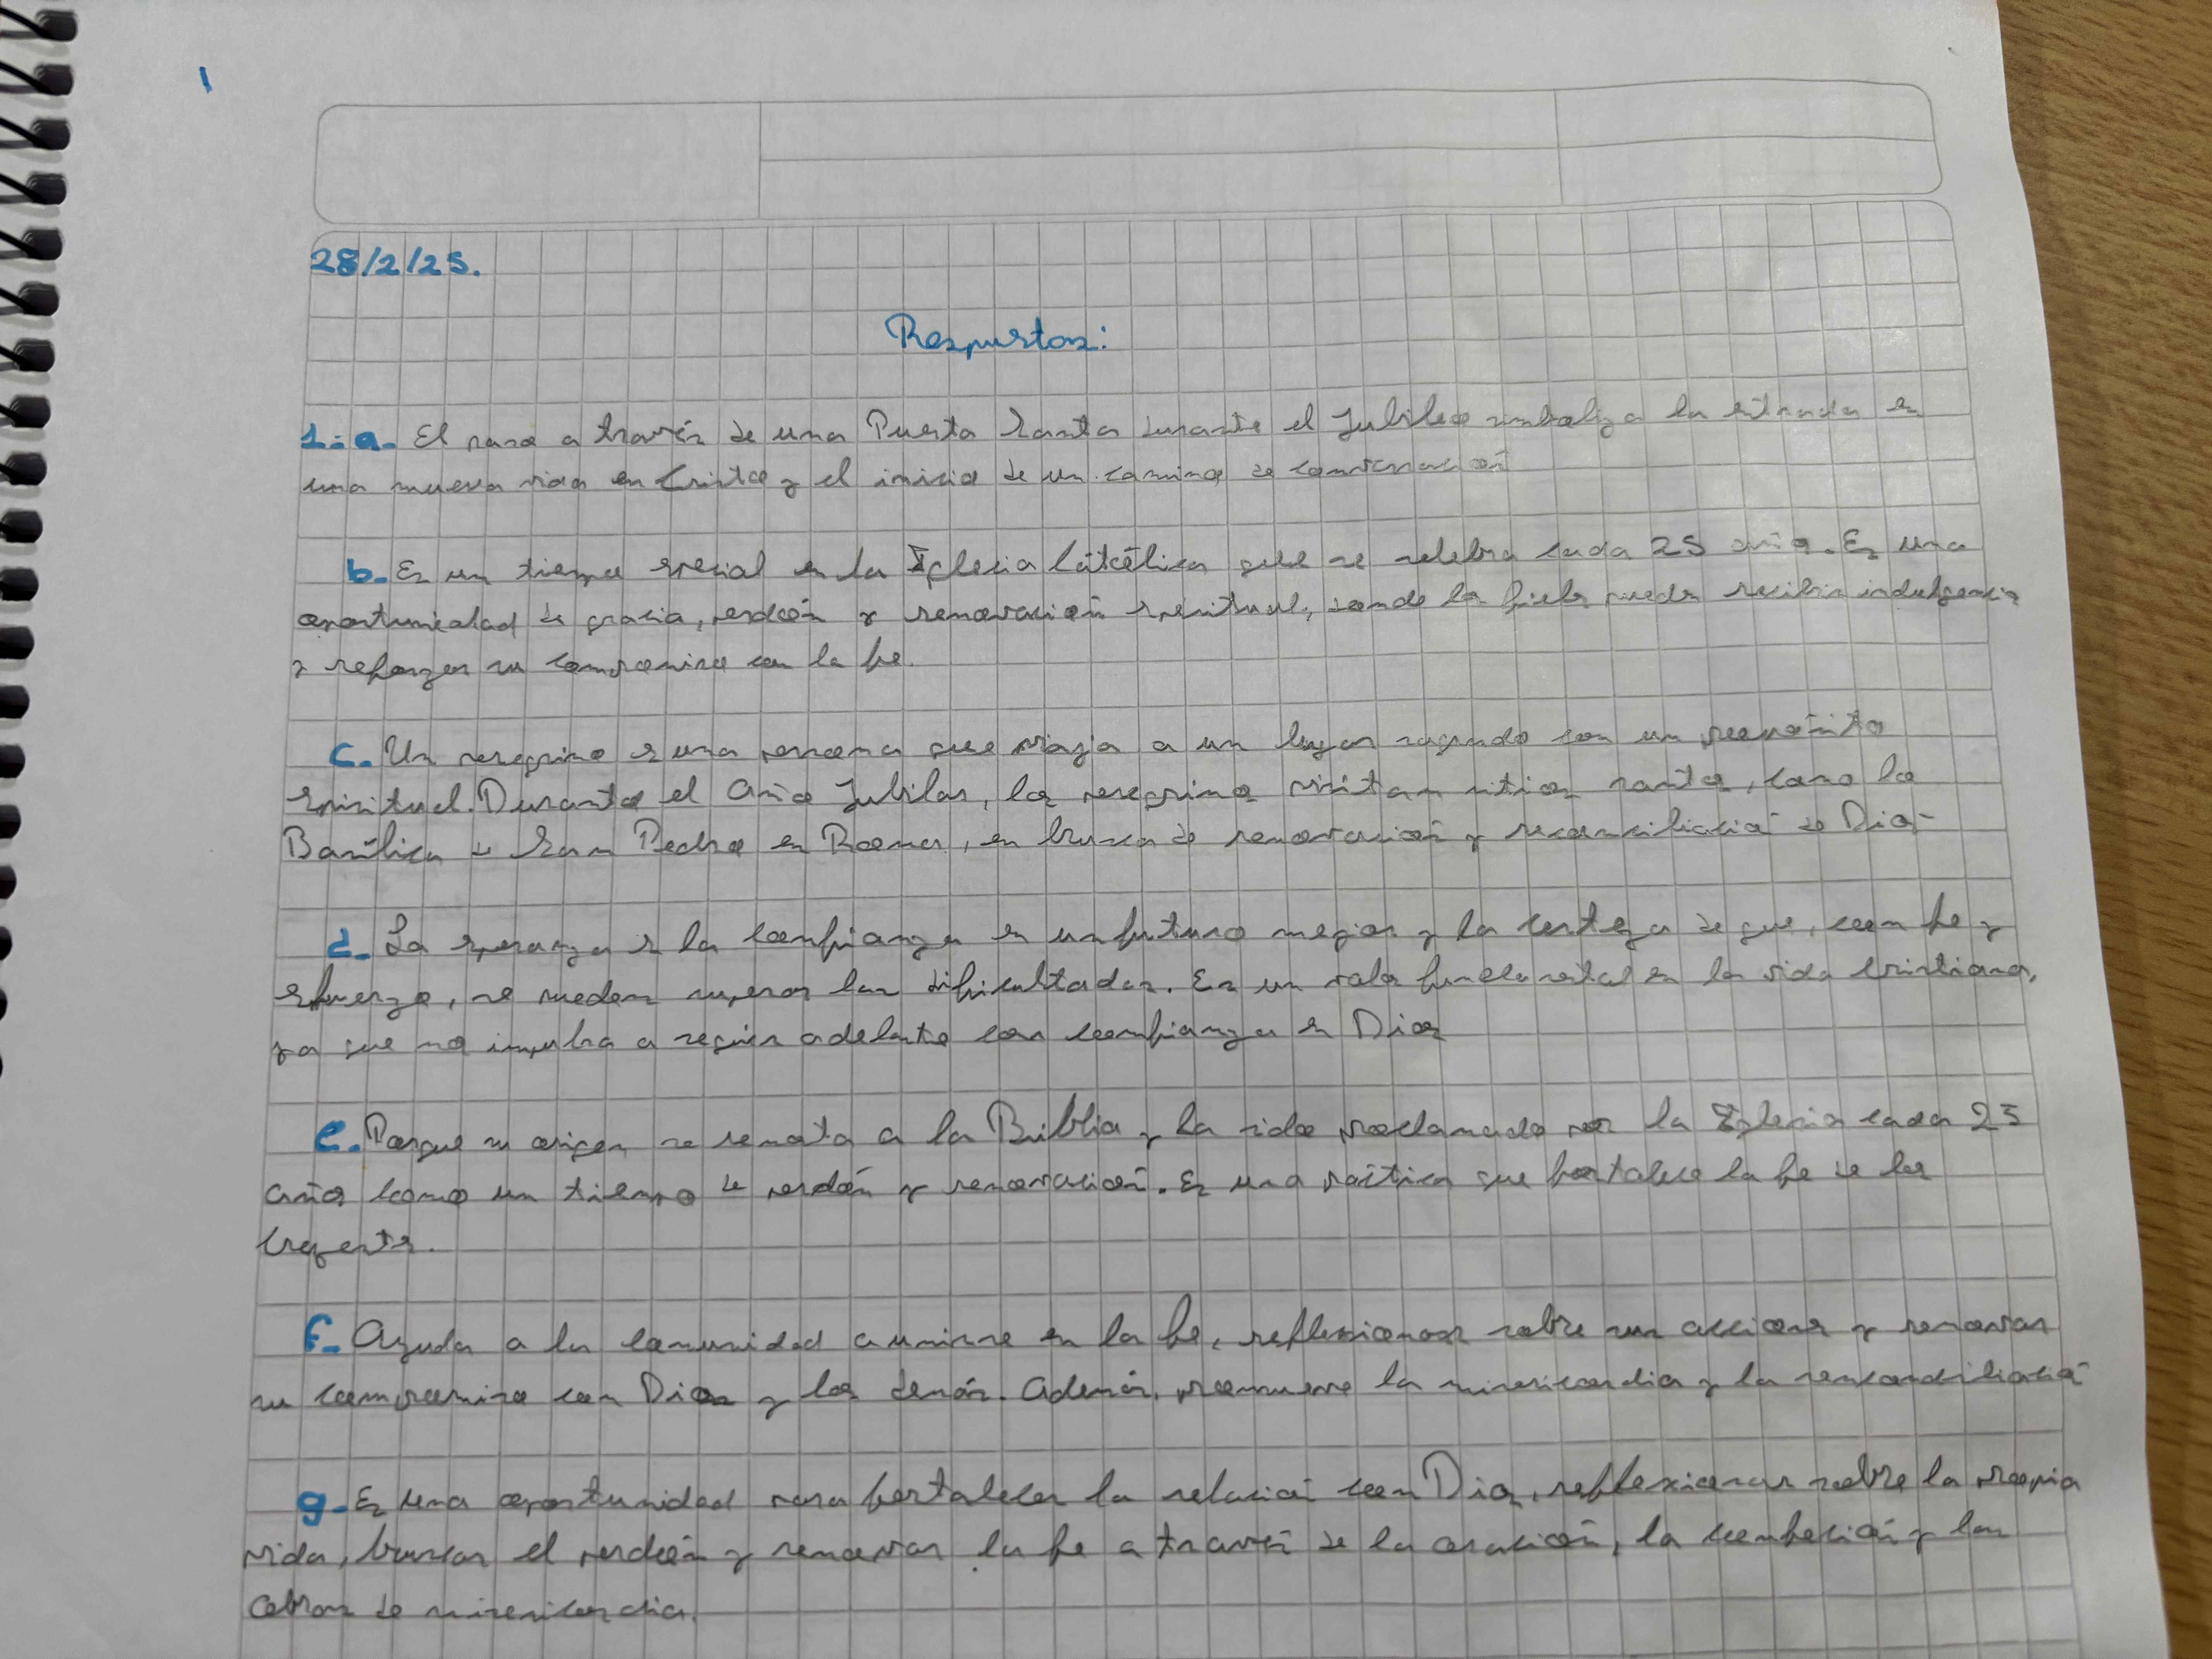 1
28/2/25.
Respuestas:
1.a. El paso a través de una Puerta Santa durante el Jubileo simboliza la entrada en
una nueva vida en Cristo y el inicio de un camino de conversación
b. Es un tiempo especial en la Iglesia Católica que se celebra cada 25 años. Es una
oportunidad de gracia, perdón y renovación espiritual, donde los fieles pueden recibir indulgencias
y reforzar su compromiso con la fe.
c. Un peregrino es una persona que viaja a un lugar sagrado con un propósito
espiritual. Durante el Año Jubilar, los peregrinos visitan sitios santos, como la
Basílica de San Pedro en Roma, en busca de renovación y reconciliación de Dios
d. La esperanza es la confianza en un futuro mejor y la certeza de que, con fe y
esfuerzo, se pueden superar las dificultades. Es un valor fundamental en la vida cristiana,
ya que nos impulsa a seguir adelante con confianza en Dios
e. Porque su origen se remota a la Biblia y ha sido proclamado por la Iglesia cada 25
años como un tiempo de perdón y renovación. Es una práctica que fortalece la fe de los
creyentes.
f. Ayuda a la comunidad a unirse en la fe, reflexionar sobre sus acciones y renovar
su compromiso con Dios y los demás. Además, promueve la misericordia y la
g. Es una oportunidad para fortalecer la relación con Dios, reflexionar sobre la propia
vida, buscar el perdón y renovar la fe a través de la oración, la confesión y las
obras de misericordia.